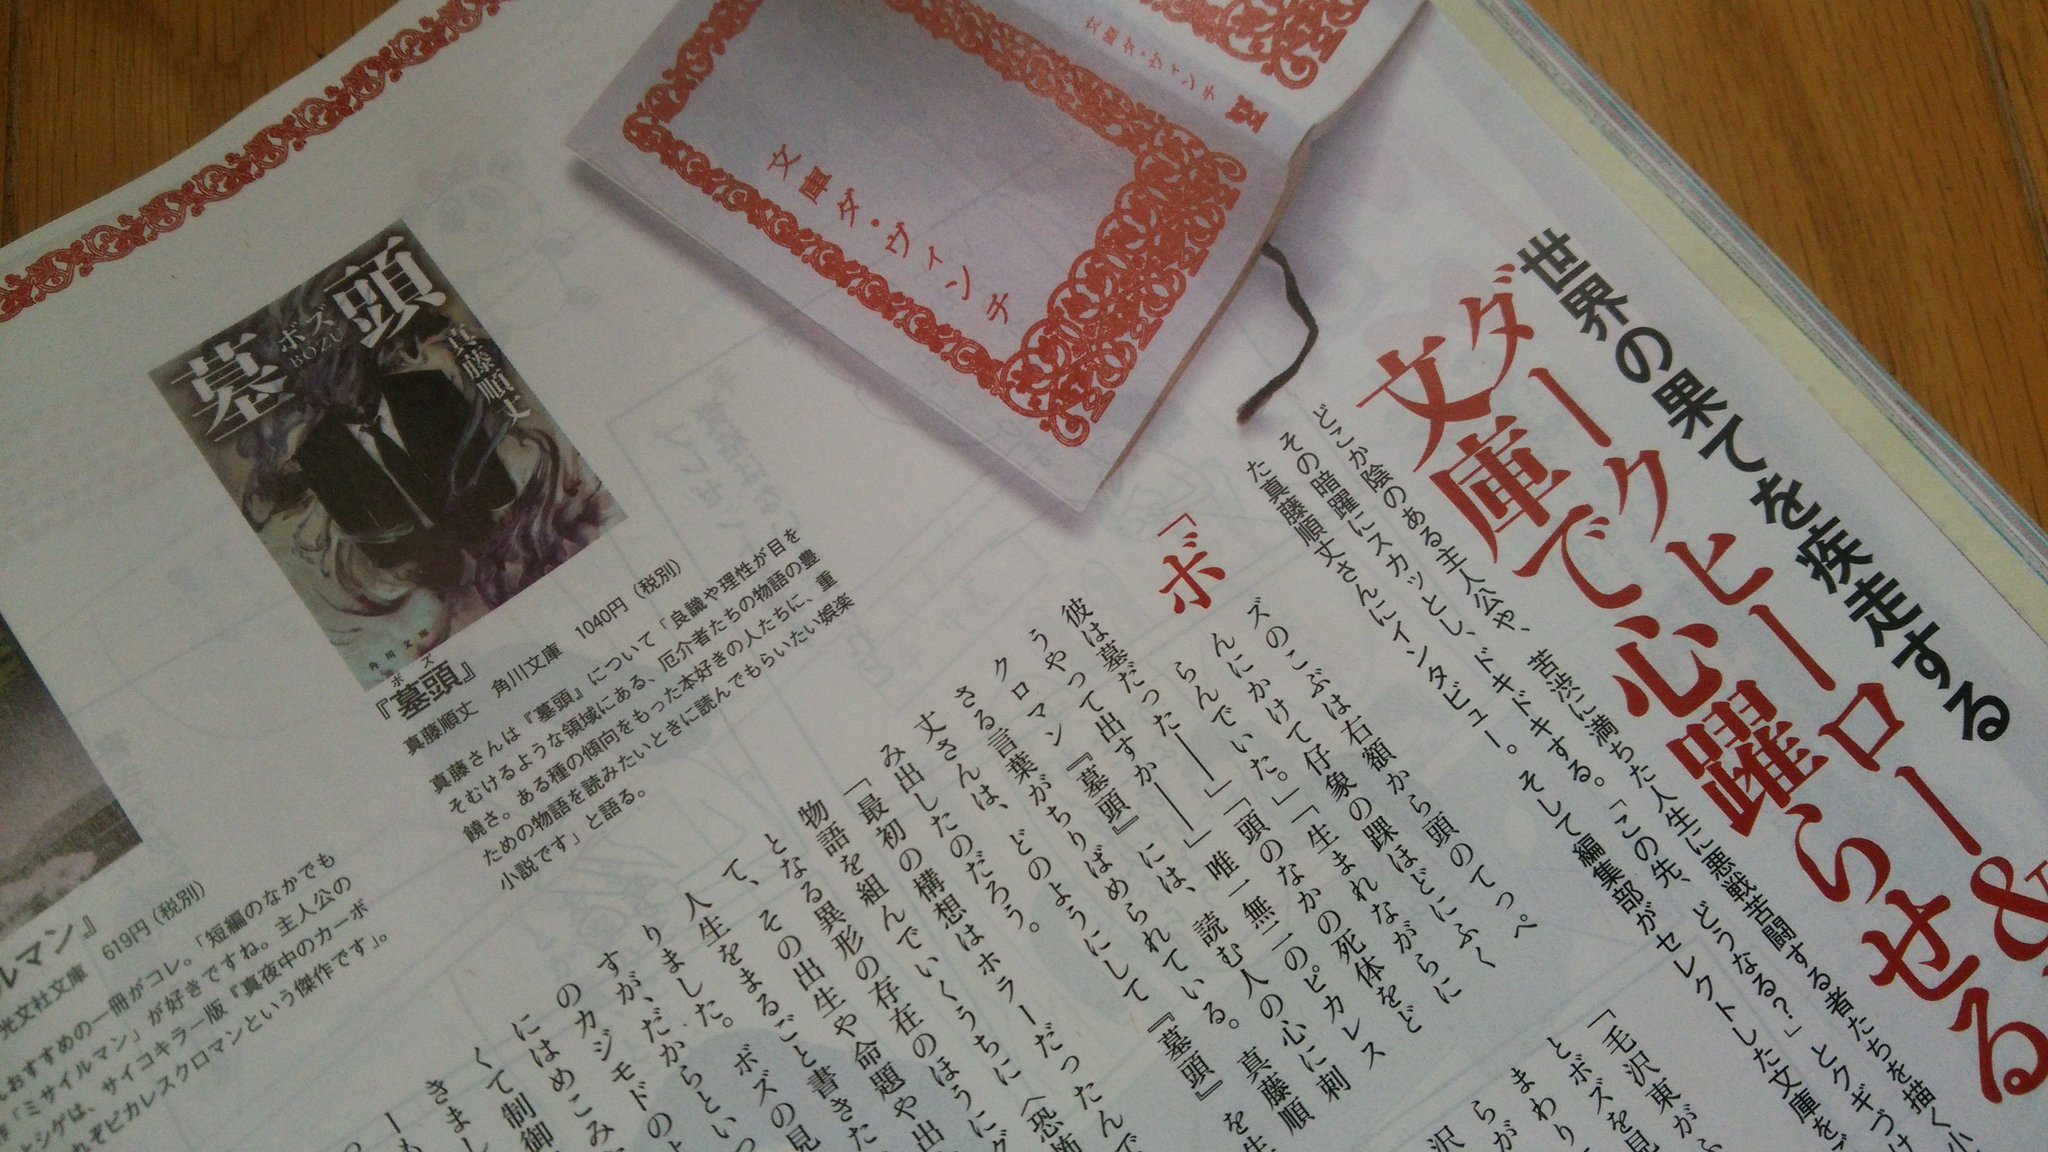 世界の果てを疾走する
ダークヒーロー&
文庫で心躍らせる
どこか陰のある主人公や、苦渋に満ちた人生に悪戦苦闘する者たちを描く小
その暗躍にスカッとし、ドキドキする。「この先、どうなる?」とクギづけ
た真藤順丈さんにインタビュー。そして編集部がセレクトした文庫をご
文庫ダ・ヴィンチ
文庫ダ・ヴィンチ
「ボ
ズのこぶは右額から頭のてっぺ
んにかけて仔象の踝ほどにふく
らんでいた。」「生まれながらに
彼は墓だった――」「頭のなかの死体をど
うやって出すか――」唯一無二のピカレス
クロマン『墓頭』には、読む人の心に刺
さる言葉がちりばめられている。真藤順
丈さんは、どのようにして『墓頭』を生
み出したのだろう。
「最初の構想はホラーだったんで
物語を組んでいくうちに〈恐怖
となる異形の存在のほうにグ
て、その出生や命題や出
人生をまるごと書きた
りました。ボズの見
すが、だからといっ
のカジモドのよ
にはめこみ
くて制御
きまし
ーも
「毛沢東がふ
とボズを見
まわり
らが
沢
墓頭
ボズ
BOZU
真藤順丈
角川文庫
『墓頭』
ボズ
真藤順丈 角川文庫 1040円(税別)
真藤さんは『墓頭』について「良識や理性が目を
そむけるような領域にある、厄介者たちの物語の豊
饒さ。ある種の傾向をもった本好きの人たちに、重
ための物語を読みたいときに読んでもらいたい娯楽
小説です」と語る。
ルマン』
光文社文庫 619円(税別)
おすすめの一冊がコレ。「短編のなかでも
「ミサイルマン」が好きですね。主人公の
とシゲは、サイコキラー版『真夜中のカーボ
れぞピカレスクロマンという傑作です」。